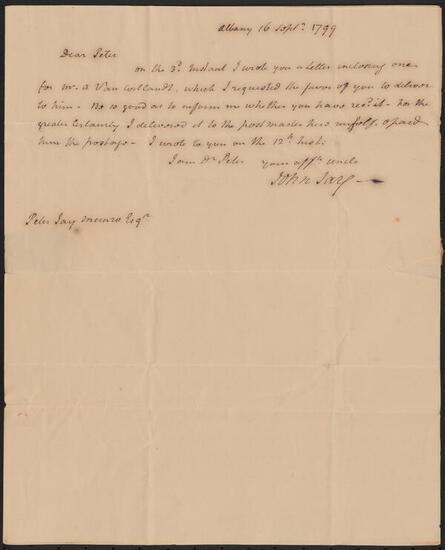 Albany 16 Sept.r 1799
Dear Peter
on the 3.d Instant I wrote you a Letter inclosing one
for Mr. A Van Cortlandt, which I requested the favor of you to deliver
to him - Be so good as to inform me whether you have rec.d it - for the
greater Certainty I delivered it to the postmaster here myself, & paid
him the postage - I wrote to you on the 12.th Inst:
I am D.r Peter your aff.te uncle
John Jay
Peter Jay Munro Esq.r